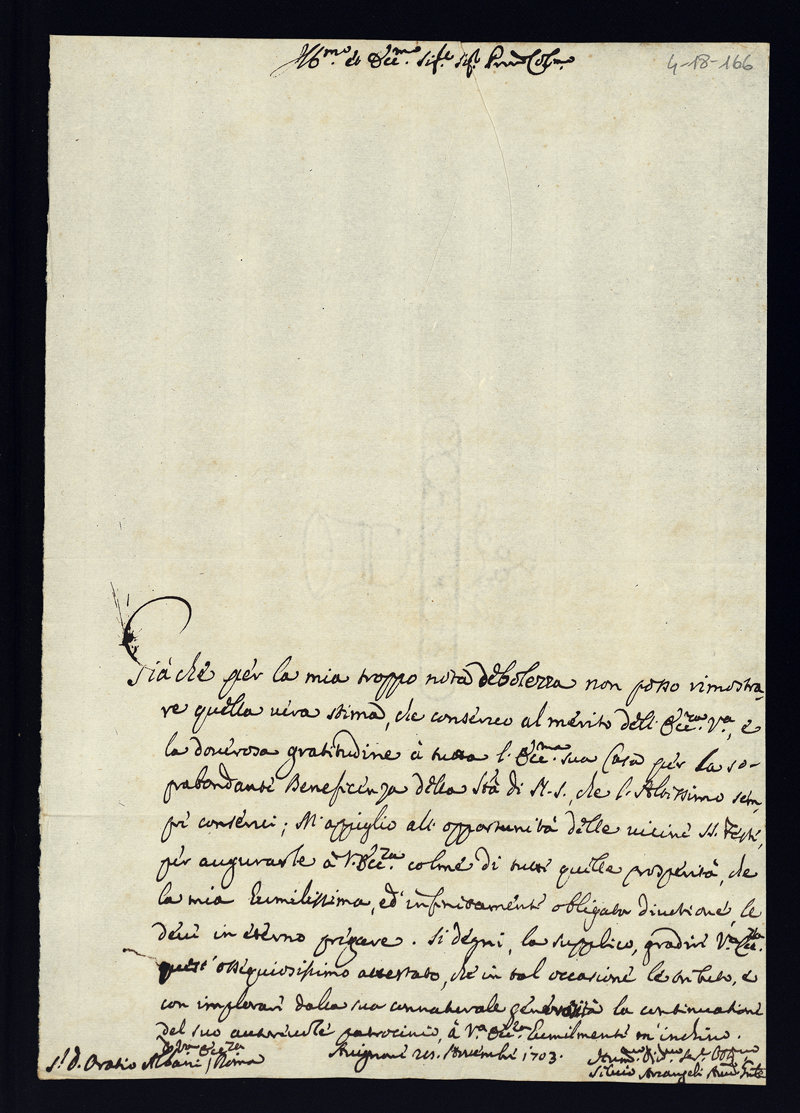 Ill.mo et Ecc.mo Sig.re Sig.r Pron Col.mo
4-18-166
Già che per la mia troppo nota debolezza non posso rimostra-
re quella vera stima, che conservo al merito dell'Ecc.za V.a, e
la doverosa gratitudine à tutta l'Ecc.ma sua Casa per la so-
prabondante Beneficenza della Stà di N.S., che l'Altissimo sem-
pre conservi; M'appiglio all'opportunità delle vicine SS. Feste,
per augurarle à V. Ecc.za colme di tutte quelle prosperità, che
la mia humilissima, ed' infinitamente obligata divotione, le
devè in eterno pregare. Si degni, la supplico, gradire V.a Ecc.za
quest'ossequiosissimo attestato, che in tal occasione le tributo, e
con implorare dalla sua connaturale generosità la continuatione
del suo autorevole patrocinio, à V.a Ecc.za humilmente m'inchino.
D V.a Ecc.za
Avignone 21 9bre 1703.
S.r D. Oratio Albani / Roma
Silvio Arcangeli